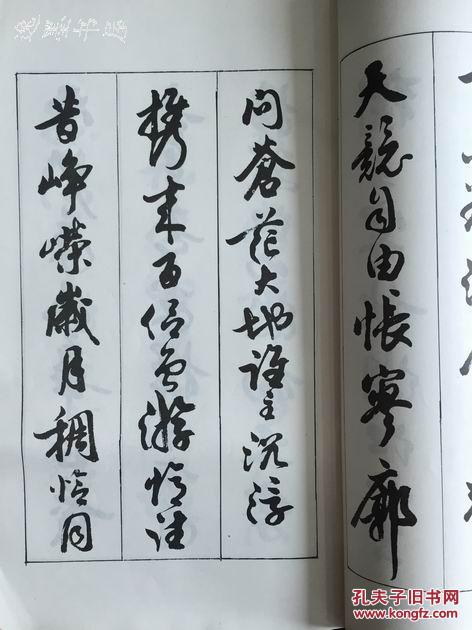 天競自由悵寥廓
问蒼茫大地谁主沉浮
携来百侣曾游憶往
昔峥嵘歲月稠恰同
孔夫子旧书网
KONGFZ.COM